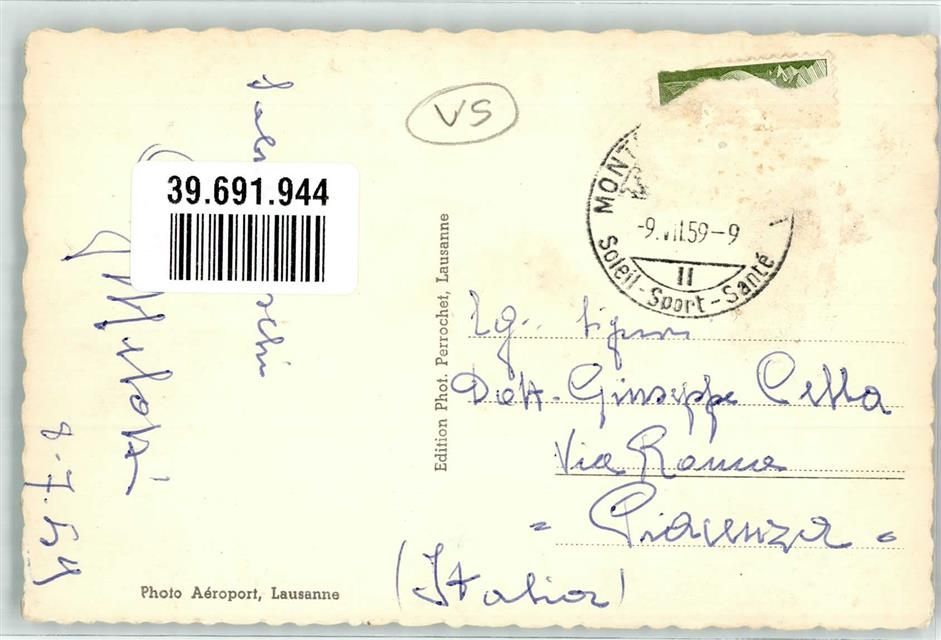 VS
39.691.944
MONT
-9.VII.59-9
II
Soleil-Sport-Santé
Eg. Signor
Dott. Giuseppe Cella
Via Roma
- Piacenza -
(Italia)
8.7.59
Edition Phot. Perrochet, Lausanne
Photo Aéroport, Lausanne